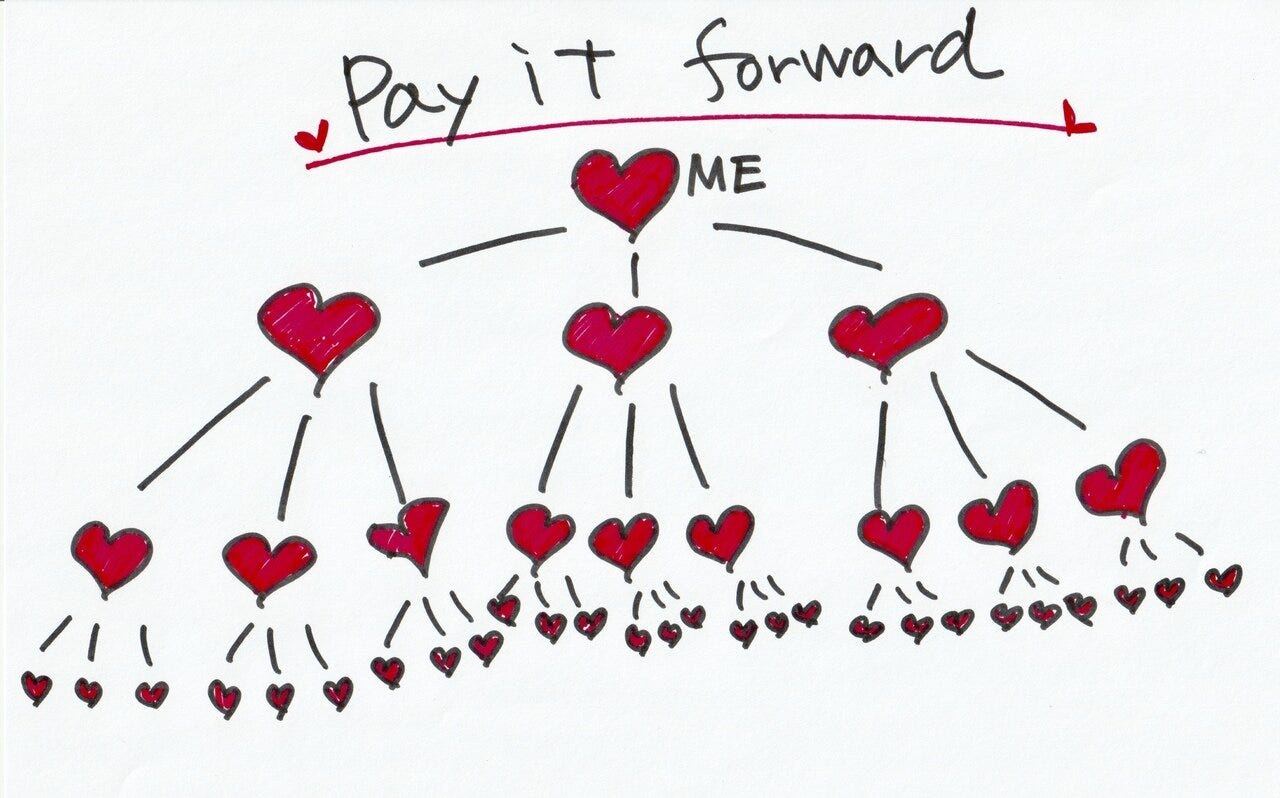 Pay it forward
ME